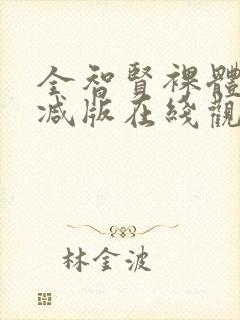 全智賢裸體
減版在綫觀
林金波